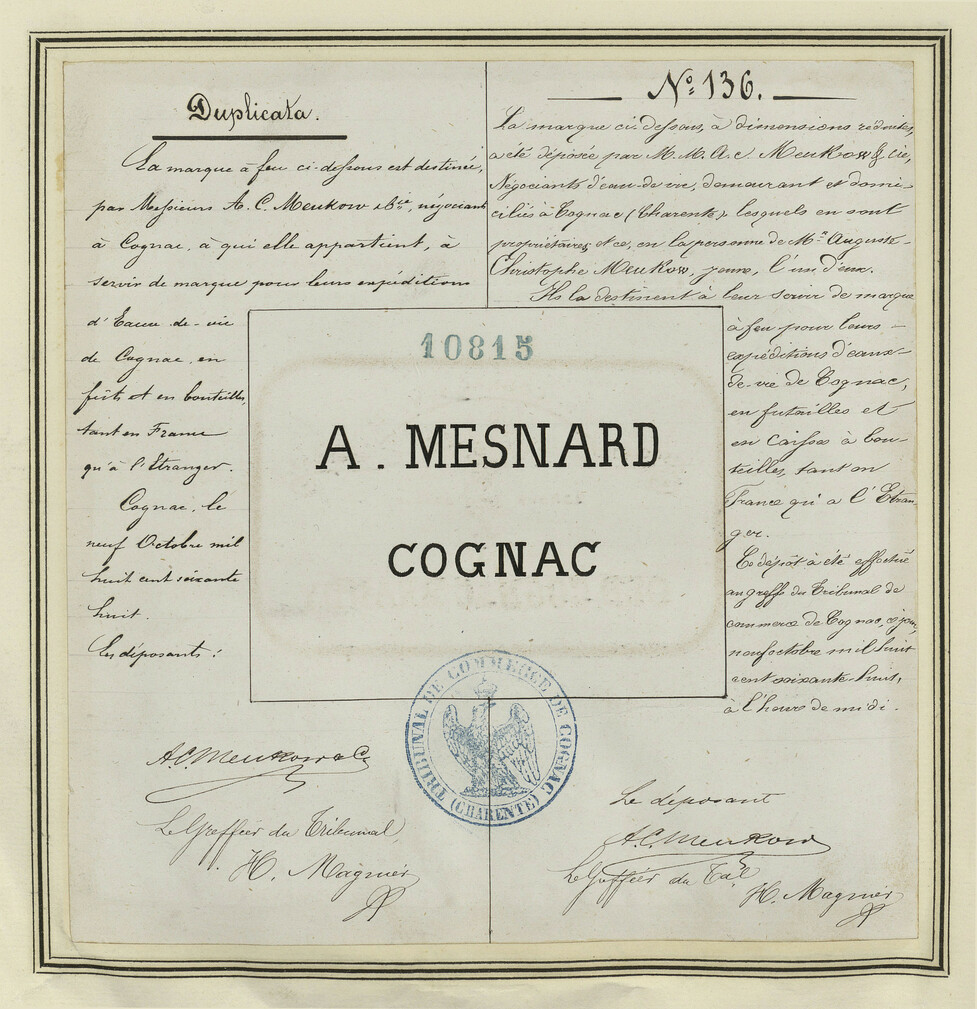 Duplicata.
La marque à feu ci-dessous est destinée,
par Messieurs A. C. Meukow & Cie, négociants
à Cognac, à qui elle appartient, à
servir de marque pour leurs expéditions
d'Eaux-de-vie
de Cognac, en
fûts et en bouteilles,
tant en France
qu'à l'Etranger.
Cognac, le
neuf Octobre mil
huit cent soixante
huit.
Les déposants :
A.C. Meukow & Co
Le Greffier du Tribunal
H. Magnier
No. 136.
La marque ci-dessous, à dimensions réduites,
a été déposée par M. M. A. C. Meukow & Cie,
Négociants d'eau-de-vie, demeurant et domi-
ciliés à Cognac (Charente), lesquels en sont
propriétaires, et ce, en la personne de Mr. Auguste-
Christophe Meukow, jeune, l'un d'eux.
Ils la destinent à leur servir de marque
à feu pour leurs
expéditions d'eaux-
de-vie de Cognac,
en futailles et
en caisses à bou-
teilles, tant en
France qu'à l'Etran-
ger.
Ce dépôt a été effectué
au greffe du Tribunal de
commerce de Cognac, ce jour,
neuf octobre mil huit
cent soixante-huit,
à l'heure de midi.
Le déposant
A.C. Meukow
Le Greffier du Tal
H. Magnier
10815
A. MESNARD
COGNAC
TRIBUNAL DE COMMERCE DE COGNAC
(CHARENTE)